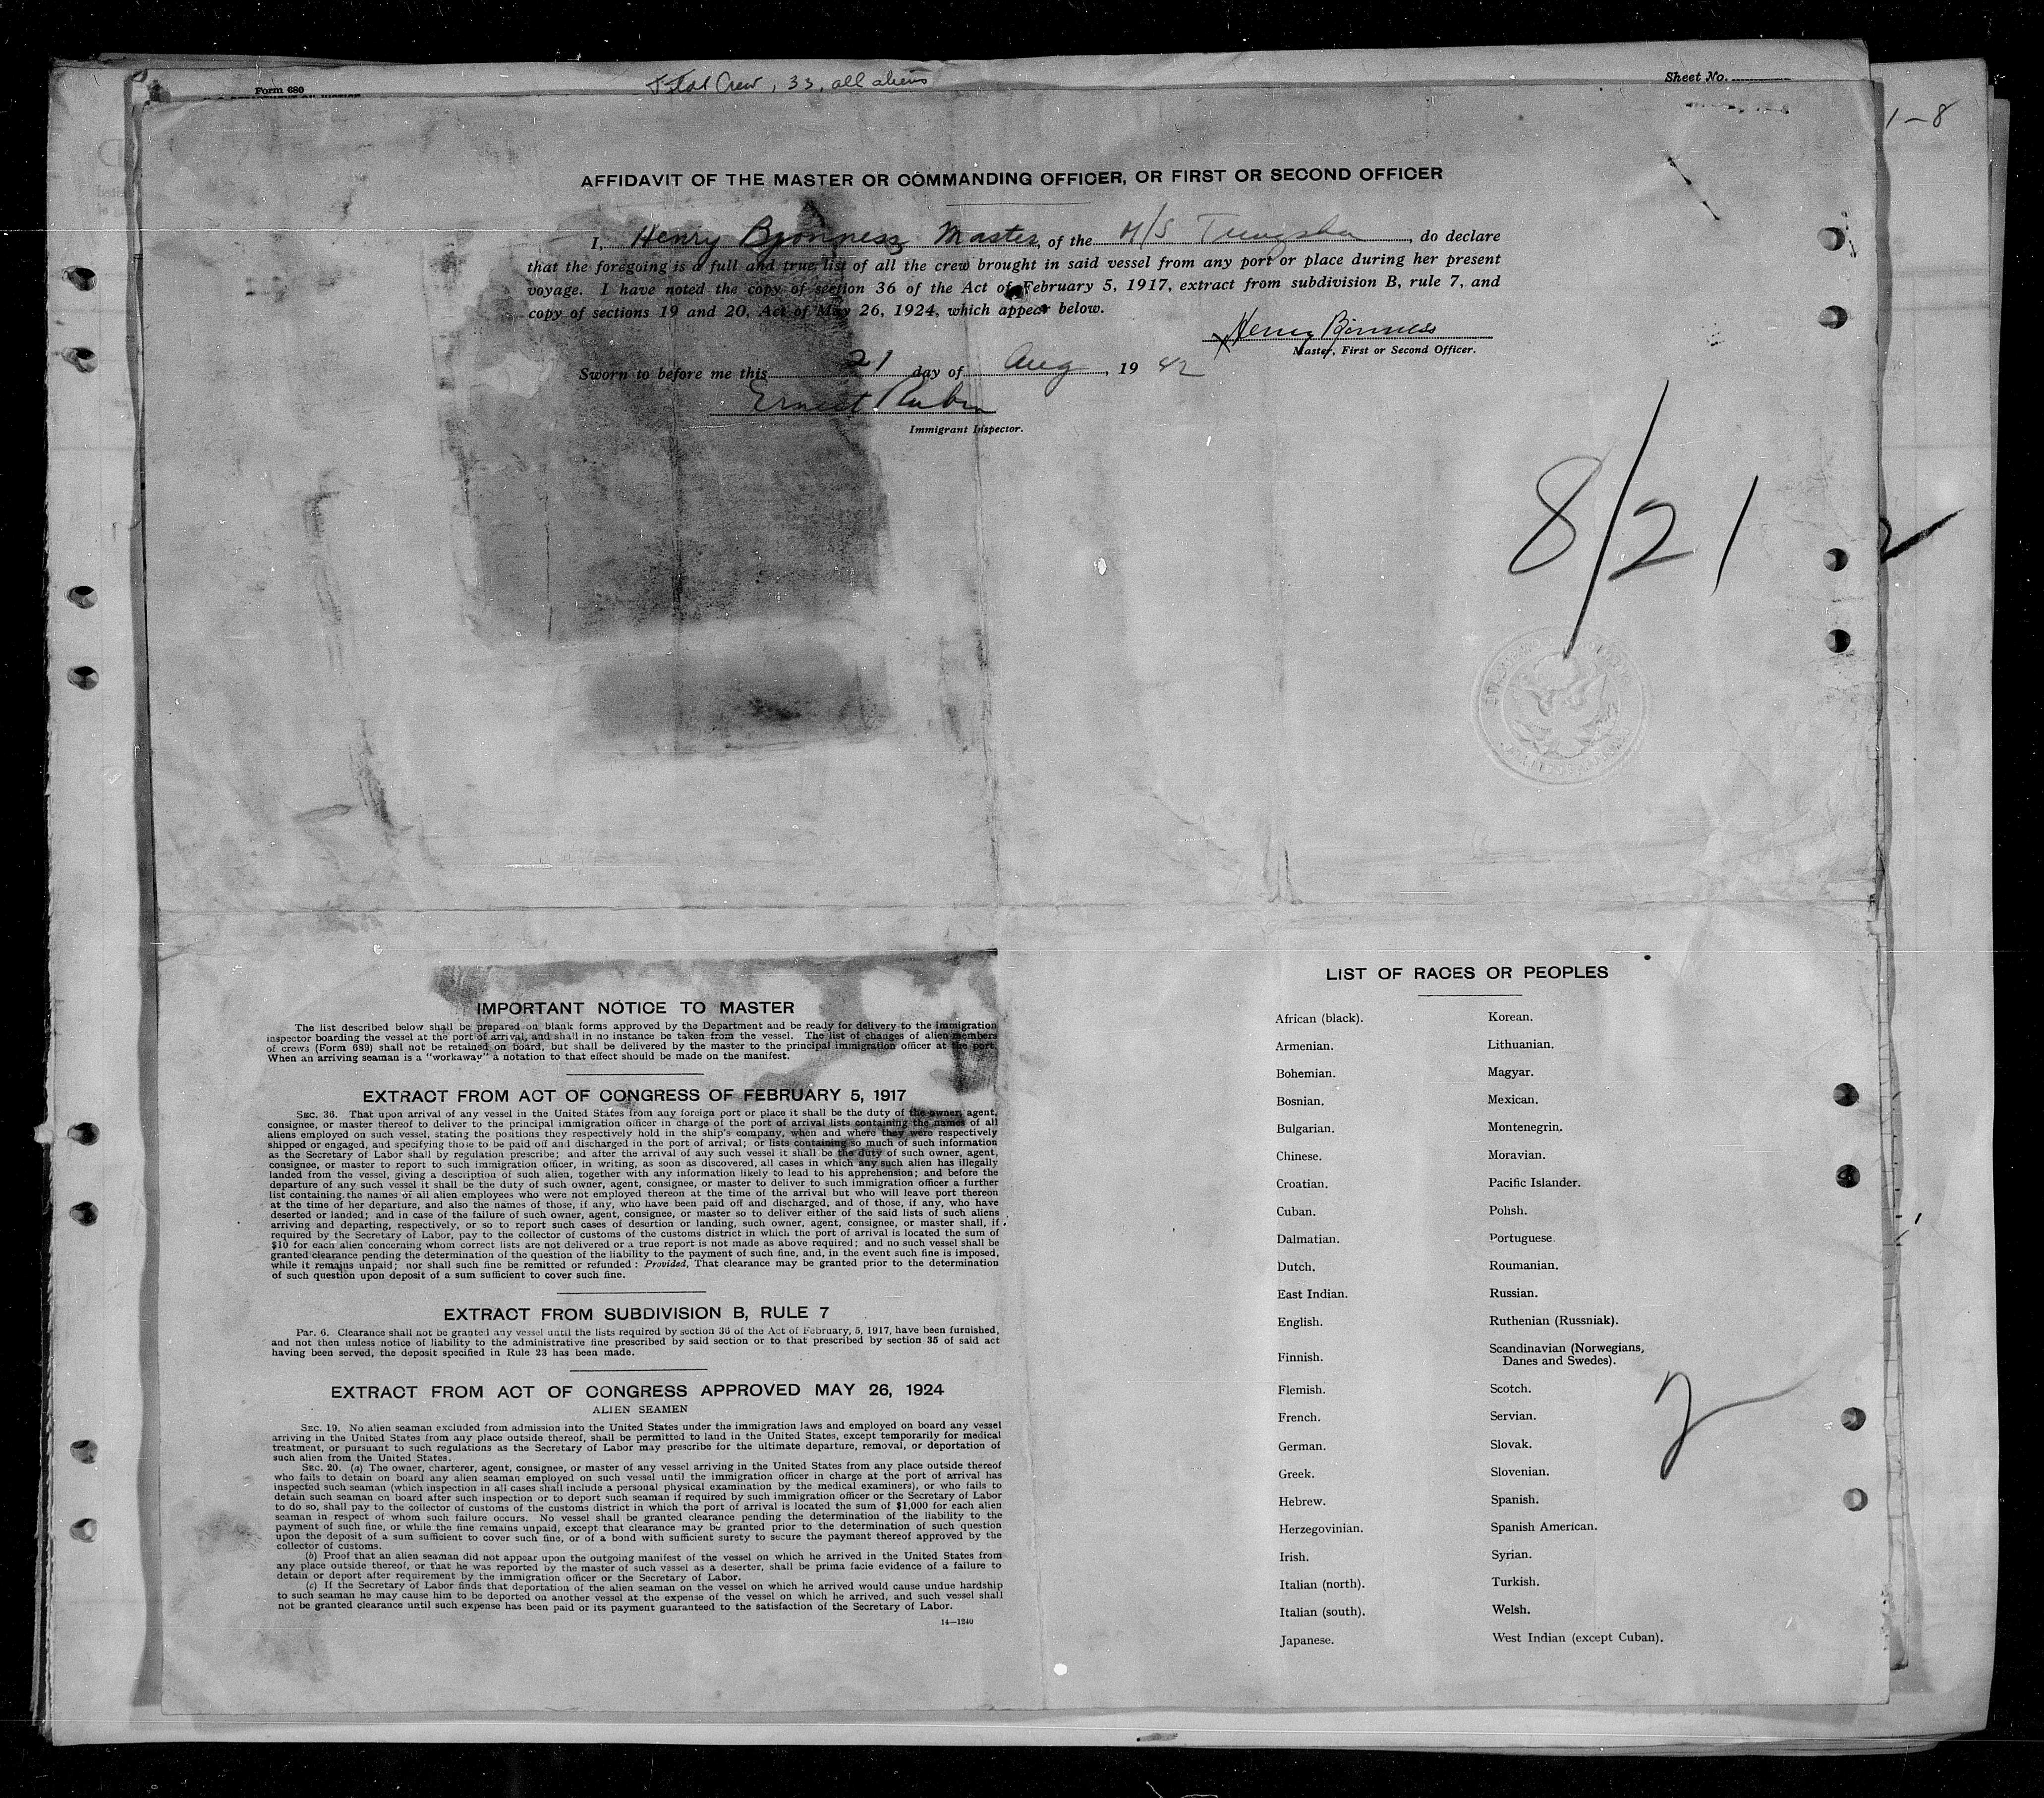 Form 680
Total Crew, 33, all aliens
Sheet No.
1-8
AFFIDAVIT OF THE MASTER OR COMMANDING OFFICER, OR FIRST OR SECOND OFFICER
I, Henry Bjonness Master, of the M/S , do declare
that the foregoing is a full and true list of all the crew brought in said vessel from any port or place during her present
voyage. I have noted the copy of section 36 of the Act of February 5, 1917, extract from subdivision B, rule 7, and
copy of sections 19 and 20, Act of May 26, 1924, which appear below.
Henry Bjonness
Master, First or Second Officer.
Sworn to before me this 21 day of Aug, 19 42
Ernest Rubin
Immigrant Inspector.
8/21
IMPORTANT NOTICE TO MASTER
The list described below shall be prepared on blank forms approved by the Department and be ready for delivery to the immigration
inspector boarding the vessel at the port of arrival, and shall in no instance be taken from the vessel. The list of changes of alien members
of crews (Form 689) shall not be retained on board, but shall be delivered by the master to the principal immigration officer at the port.
When an arriving seaman is a "workaway" a notation to that effect should be made on the manifest.
EXTRACT FROM ACT OF CONGRESS OF FEBRUARY 5, 1917
SEC. 36. That upon arrival of any vessel in the United States from any foreign port or place it shall be the duty of the owner, agent,
consignee, or master thereof to deliver to the principal immigration officer in charge of the port of arrival lists containing the names of all
aliens employed on such vessel, stating the positions they respectively hold in the ship's company, when and where they were respectively
shipped or engaged, and specifying those to be paid off and discharged in the port of arrival; or lists containing so much of such information
as the Secretary of Labor shall by regulation prescribe; and after the arrival of any such vessel it shall be the duty of such owner, agent,
consignee, or master to report to such immigration officer, in writing, as soon as discovered, all cases in which any such alien has illegally
landed from the vessel, giving a description of such alien, together with any information likely to lead to his apprehension; and before the
departure of any such vessel it shall be the duty of such owner, agent, consignee, or master to deliver to such immigration officer a further
list containing the names of all alien employees who were not employed thereon at the time of the arrival but who will leave port thereon
at the time of her departure, and also the names of those, if any, who have been paid off and discharged, and of those, if any, who have
deserted or landed; and in case of the failure of such owner, agent, consignee, or master so to deliver either of the said lists of such aliens
arriving and departing, respectively, or so to report such cases of desertion or landing, such owner, agent, consignee, or master shall, if
required by the Secretary of Labor, pay to the collector of customs of the customs district in which the port of arrival is located the sum of
$10 for each alien concerning whom correct lists are not delivered or a true report is not made as above required; and no such vessel shall be
granted clearance pending the determination of the question of the liability to the payment of such fine, and, in the event such fine is imposed,
while it remains unpaid; nor shall such fine be remitted or refunded: Provided, That clearance may be granted prior to the determination
of such question upon deposit of a sum sufficient to cover such fine.
EXTRACT FROM SUBDIVISION B, RULE 7
PAR. 6. Clearance shall not be granted any vessel until the lists required by section 36 of the Act of February, 5, 1917, have been furnished,
and not then unless notice of liability to the administrative fine prescribed by said section or to that prescribed by section 35 of said act
having been served, the deposit specified in Rule 23 has been made.
EXTRACT FROM ACT OF CONGRESS APPROVED MAY 26, 1924
ALIEN SEAMEN
SEC. 19. No alien seaman excluded from admission into the United States under the immigration laws and employed on board any vessel
arriving in the United States from any place outside thereof, shall be permitted to land in the United States, except temporarily for medical
treatment, or pursuant to such regulations as the Secretary of Labor may prescribe for the ultimate departure, removal, or deportation of
such alien from the United States.
SEC. 20. (a) The owner, charterer, agent, consignee, or master of any vessel arriving in the United States from any place outside thereof
who fails to detain on board any alien seaman employed on such vessel until the immigration officer in charge at the port of arrival has
inspected such seaman (which inspection in all cases shall include a personal physical examination by the medical examiners), or who fails to
detain such seaman on board after such inspection or to deport such seaman if required by such immigration officer or the Secretary of Labor
to do so, shall pay to the collector of customs of the customs district in which the port of arrival is located the sum of $1,000 for each alien
seaman in respect of whom such failure occurs. No vessel shall be granted clearance pending the determination of the liability to the
payment of such fine, or while the fine remains unpaid, except that clearance may be granted prior to the determination of such question
upon the deposit of a sum sufficient to cover such fine, or of a bond with sufficient surety to secure the payment thereof approved by the
collector of customs.
(b) Proof that an alien seaman did not appear upon the outgoing manifest of the vessel on which he arrived in the United States from
any place outside thereof, or that he was reported by the master of such vessel as a deserter, shall be prima facie evidence of a failure to
detain or deport after requirement by the immigration officer or the Secretary of Labor.
(c) If the Secretary of Labor finds that deportation of the alien seaman on the vessel on which he arrived would cause undue hardship
to such seaman he may cause him to be deported on another vessel at the expense of the vessel on which he arrived, and such vessel shall
not be granted clearance until such expense has been paid or its payment guaranteed to the satisfaction of the Secretary of Labor.
14—1240
LIST OF RACES OR PEOPLES
African (black).
Armenian.
Bohemian.
Bosnian.
Bulgarian.
Chinese.
Croatian.
Cuban.
Dalmatian.
Dutch.
East Indian.
English.
Finnish.
Flemish.
French.
German.
Greek.
Hebrew.
Herzegovinian.
Irish.
Italian (north).
Italian (south).
Japanese.
Korean.
Lithuanian.
Magyar.
Mexican.
Montenegrin.
Moravian.
Pacific Islander.
Polish.
Portuguese.
Roumanian.
Russian.
Ruthenian (Russniak).
Scandinavian (Norwegians,
Danes and Swedes).
Scotch.
Servian.
Slovak.
Slovenian.
Spanish.
Spanish American.
Syrian.
Turkish.
Welsh.
West Indian (except Cuban).
2